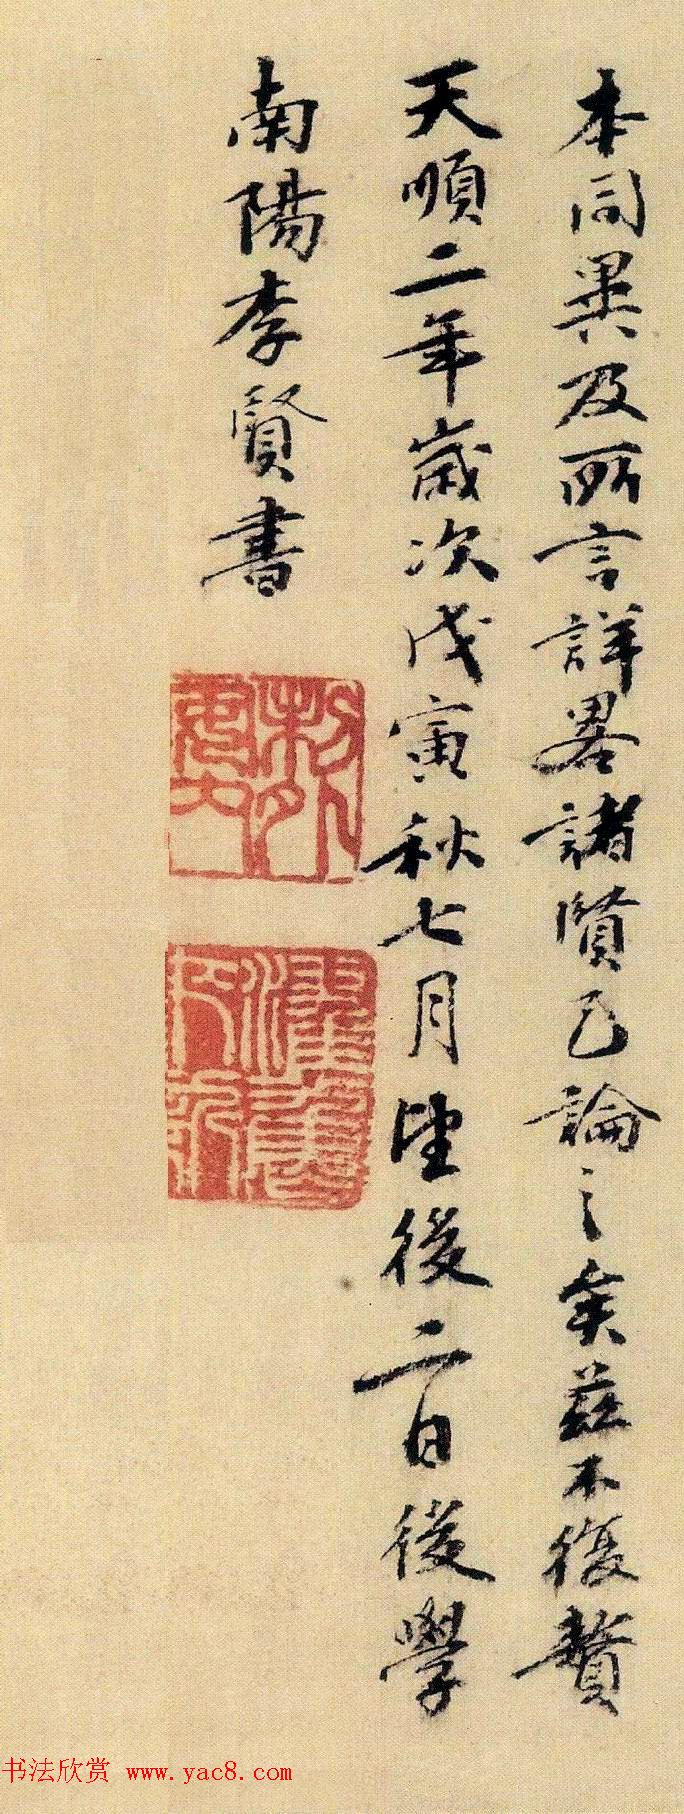 本同異及所言詳畧諸賢已論之矣茲不復贅
天順二年歲次戊寅秋七月望後二日後學
南陽李賢書
书法欣赏 www.yac8.com